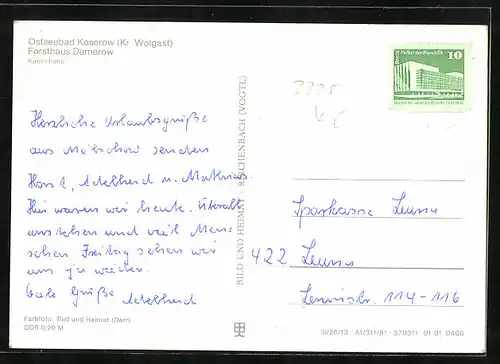 Ostseebad Koserow (Kr. Wolgast)
Forsthaus Damerow
Kaminhalle
Herzliche Urlaubsgrüße
aus senden
Horst, Adelheid u. Mathias.
Hier waren wir heute. Überall
anstehen und viel Men-
schen. Freitag sehen wir
uns ja wieder.
Viele Grüße Adelheid
Farbfoto: Bild und Heimat (Darr)
DDR 0,20 M
BILD UND HEIMAT · REICHENBACH (VOGTL)
Palast der Republik
10
DEUTSCHE DEMOKRATISCHE REPUBLIK
Sparkasse Leuna
422 Leuna
Leninstr. 114-116
A1/311/81 · 370311 01 01 0406